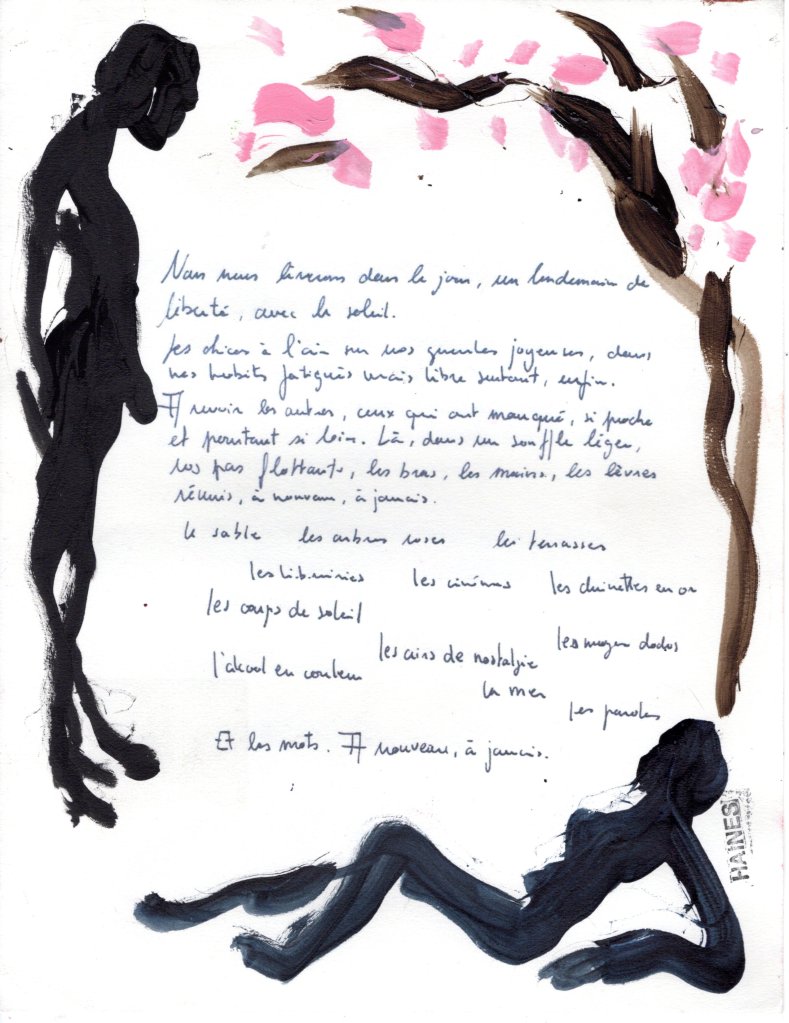 Nous nous livrerons dans le jour, un lendemain de
liberté, avec le soleil.
à l'air sur nos gueules joyeuses, dans
nos habits fatigués mais libre surtout, enfin.
A revoir les autres, ceux qui ont manqué, si proche
et pourtant si loin. Là, dans un souffle léger,
nos pas flottants, les bras, les mains, les lèvres
réunis, à nouveau, à jamais.
le sable les arbres roses les terrasses
les librairies les cinémas les en or
les coups de soleil
les airs de nostalgie les
l'alcool en couleur
la mer
les paroles
Et les mots. A nouveau, à jamais.
HAINES